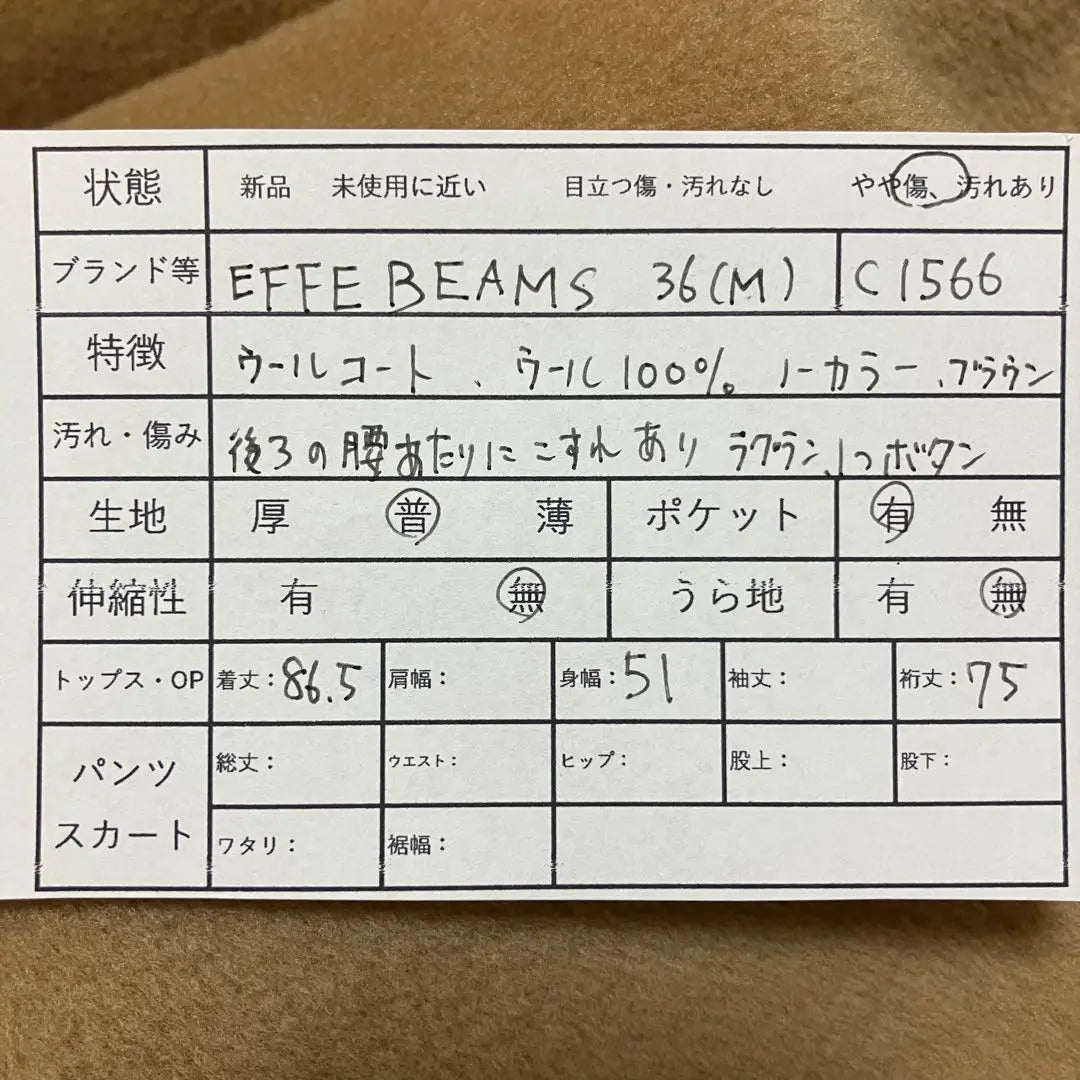 状態 新品 未使用に近い 目立つ傷・汚れなし やや傷、汚れあり
ブランド等 EFFE BEAMS 36(M) C1566
特徴 ウールコート、ウール100% ノーカラー、ブラウン
汚れ・傷み 後ろの腰あたりにこすれあり ラグラン、1つボタン
生地 厚 普 薄 ポケット 有 無
伸縮性 有 無 うら地 有 無
トップス・OP 着丈:86.5 肩幅: 身幅:51 袖丈: 裄丈:75
パンツ 総丈: ウエスト: ヒップ: 股上: 股下:
スカート ワタリ: 裾幅: